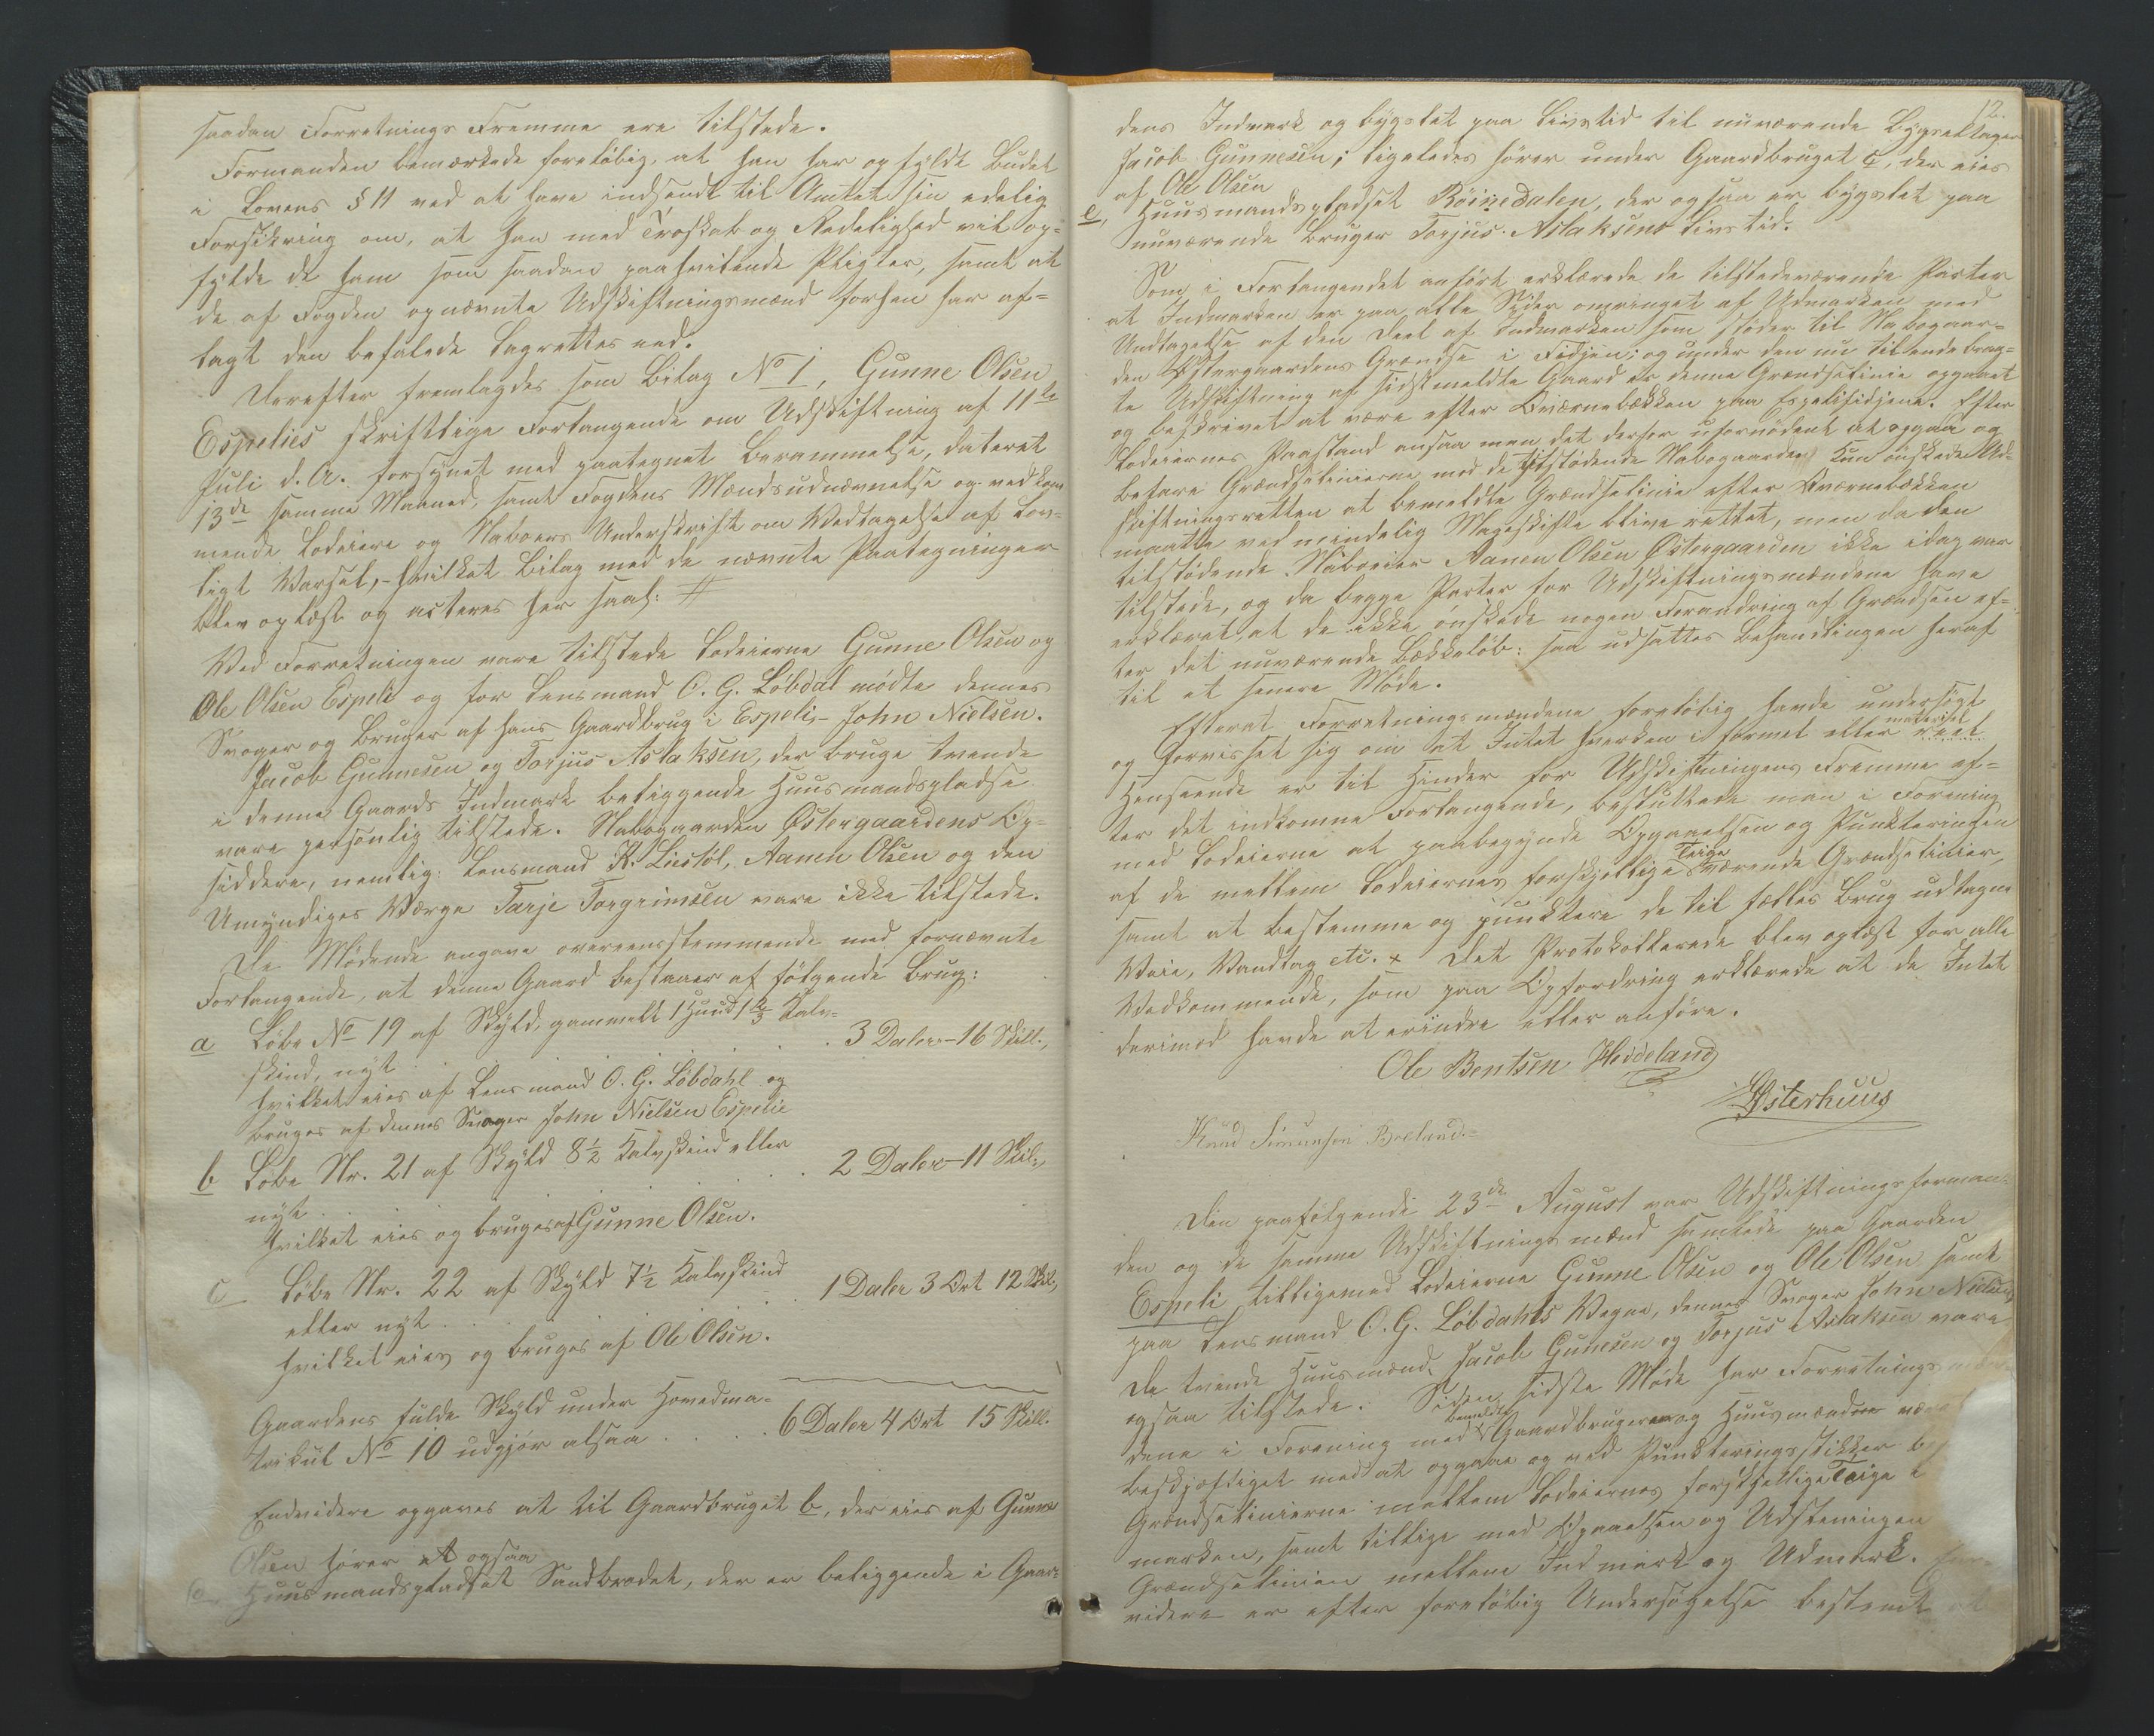 saadan Forretnings Fremme ere tilstede.
Formanden bemærkede foreløbig, at han har opfyldt Budet
i Lovens § 11 ved at have indsendt til Amtet sin edelig
Forsikring om, at han med Troskab og Redelighed vil op-
fylde de ham som saadan paahvilende Pligter, samt at
de af Fogden opnævnte Udskiftningsmænd forhen har af-
lagt den befalede Lagrettes eed.
Derefter fremlagdes som Bilag No 1, Gunne Olsen
Espelies skriftlige Forlangende om Udskiftning af 11te
Juli d. A. forsynet med paategnet Berammelse, dateret
13de samme Maaned, samt Fogdens Mændsudnævnelse og vedkom
mende Lodeiere og Naboers Underskrift om Vedtagelse af Lov-
ligt Varsel, - hvilket Bilag med de nævnte Paategninger
blev oplæst og acteres her saal: #
Ved Forretningen vare tilstede Lodeierne Gunne Olsen og
Ole Olsen Espeli og for Lensmand O. G. Løbdal mødte dennes
Svoger og Bruger af hans Gaardbrug i Espeli - John Nielsen.
Jacob Gunnesen og Torjus Aslaksen, der bruge tvende
i denne Gaards Indmark beliggende Huusmandspladse
vare personlig tilstede. Nabogaarden Østergaardens Op-
siddere, nemlig: Lensmand K. Liestøl, Aanen Olsen og den
Umyndiges Værge Tarje Torgrimsen vare ikke tilstede.
De Mødende angave overeensstemmende med fornævnte
Forlangende, at denne Gaard bestaaer af følgende Brug:
a Løbe No 19 af Skyld, gammelt 1 Huud 1 2/3 Kalv-
skind, nyt . . . . . 3 Daler - 16 Skill.,
hvilket eies af Lensmand O. G. Løbdahl og
bruges af dennes Svoger John Nielsen Espelie
b Løbe Nr. 21 af Skyld 8½ Kalvskind eller
nyt . . . . . 2 Daler - 11 Skil.,
hvilket eies og bruges af Gunne Olsen.
c Løbe Nr. 22 af Skyld 7½ Kalvskind
eller nyt . . . . 1 Daler 3 Ort 12 Skil.,
hvilket eies og bruges af Ole Olsen.
Gaardens fulde Skyld under Hovedma-
trikul No 10 udgjør altsaa . . . . 6 Daler 4 Ort 15 Skill.
Endvidere opgaves at til Gaardbruget b, der eies af Gunne
Olsen hører et ogsaa
Huusmandspladset Sandbrødet, der er beliggende i Gaar-
12.
dens Indmark og bygslet paa Livstid til nuværende Bygseltager
Jacob Gunnesen; ligeledes hører under Gaardbruget c, der eies
af Ole Olsen
e, Huusmandspladset Röinedalen, der ogsaa er bygslet paa
nuværende Bruger Torjus Aslaksens Livstid.
Som i Forlangendet anført erklærede de tilstedeværende Parter
at Indmarken er paa alle Sider omringet af Udmarken med
Undtagelse af den Deel af Indmarken som støder til Nabogaar-
den Østergaardens Grændse i Fidjen; og under den nu tilendebrag-
te Udskiftning af sidstmeldte Gaard er denne Grændselinie opgaaet
og beskrevet at være efter Qværnebækken paa Espelifidjene. Efter
Lodeiernes Paastand ansaa man det derfor ufornødent at opgaa og
befare Grændselinierne med de tilstødende Nabogaarder. Kun ønskede Ud-
skiftningsretten at bemeldte Grændselinie efter Qværnebækken
maatte ved mindelig Mageskifte blive rettet, men da den
tilstødende Naboeier Aanen Olsen Østergaarden ikke idag var
tilstede, og da begge Parter for Udskiftningsmændene have
erklæret at de ikke ønskede nogen Forandring af Grændsen ef-
ter det nuværende Bækkeløb: saa udsattes Behandlingen heraf
til et senere Møde.
Efterat Forretningsmændene foreløbig havde undersøgt
og forvisset sig om at Intet hverken i formel eller materiel reel
Henseende er til Hinder for Udskiftningens Fremme ef-
ter det indkomne Forlangende, besluttede man i Forening
med Lodeierne at paabegynde Opgaaelsen og Punkteringen
af de mellem Lodeiernes forskjellige Teige værende Grændselinier,
samt at bestemme og punktere de til fælles Brug udtagne
Veie, Vandtag etc. x Det Protokollerede blev oplæst for alle
Vedkommende, som paa Opfordring erklærede at de Intet
derimod havde at erindre eller anføre.
Ole Bentsen Heddeland
Østerhuus
Knud Simunsen Breland.
Den paafølgende 23de August var Udskiftningsforman-
den og de samme Udskiftningsmænd samlede paa Gaarden
Espeli tilligemed Lodeierne Gunne Olsen og Ole Olsen samt
paa Lensmand O. G. Løbdahls Vegne, dennes Svoger John Nielsen
De tvende Huusmænd, Jacob Gunesen og Torjus Aslaksen vare
ogsaa tilstede. Siden sidste Møde har Forretningsmæn-
dene i Forening med bemeldte Gaardbrugere og Huusmænd
beskjæftiget med at opgaae og ved Punkteringsstikker
Grændselinierne mellem Lodeiernes forskjellige Teige i
marken, samt tillige med Opgaaelsen og Udsteningen
Grændselinien mellem Indmark og Udmark.
videre er efter foreløbig Undersøgelse bestemt at